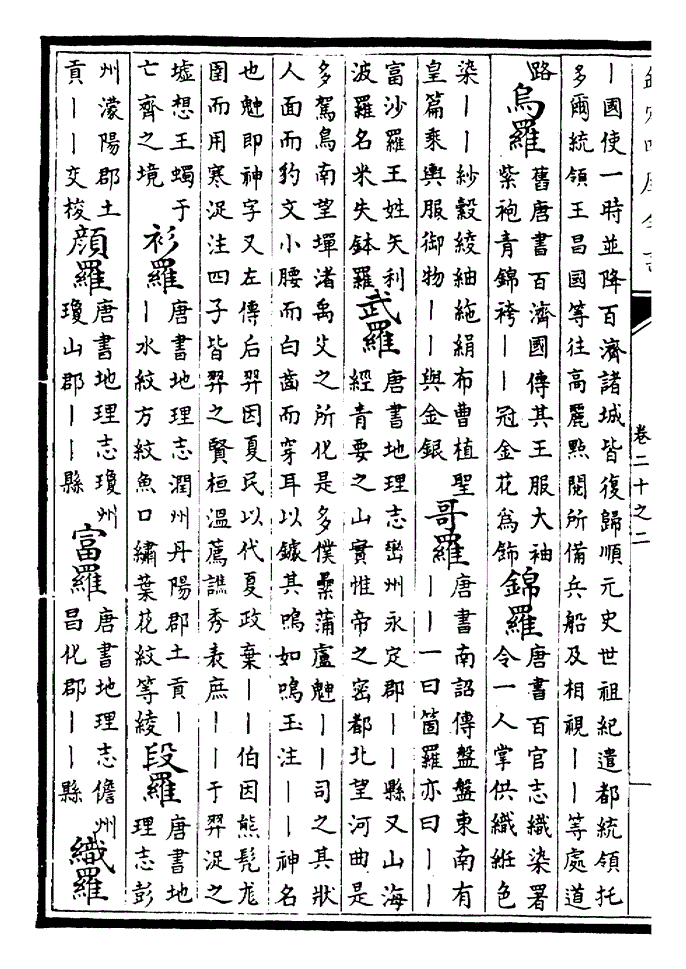 欽定四庫全書
卷二十之二
丨國使一時並降百濟諸城皆復歸順元史世祖紀遣都統領托
多爾統領王昌國等往高麗點閱所備兵船及相視丨丨等處道
路
烏羅
舊唐書百濟國傳其王服大袖
紫袍青錦袴丨丨冠金花為飾
錦羅
唐書百官志織染署
令一人掌供織紝色
染丨丨紗縠綾紬絁絹布曹植聖
皇篇乘輿服御物丨丨與金銀
哥羅
唐書南詔傳盤盤東南有
丨丨一曰箇羅亦曰丨丨
富沙羅王姓矢利
波羅名米失鉢羅
武羅
唐書地理志巒州永定郡丨丨縣又山海
經青要之山實惟帝之密都北望河曲是
多駕鳥南望墠渚禹父之所化是多僕纍蒲盧䰠丨丨司之其狀
人面而豹文小腰而白齒而穿耳以鐻其鳴如鳴玉注丨丨神名
也䰠即神字又左傳后羿因夏民以代夏政棄丨丨伯因熊髡尨
圉而用寒浞注四子皆羿之賢桓溫薦譙秀表庶丨丨于羿浞之
墟想王蠋于
亡齊之境
衫羅
唐書地理志潤州丹陽郡土貢丨
丨水紋方紋魚口繡葉花紋等綾
段羅
唐書地
理志彭
州濛陽郡土
貢丨丨交梭
顔羅
唐書地理志瓊州
瓊山郡丨丨縣
富羅
唐書地理志儋州
昌化郡丨丨縣
織羅